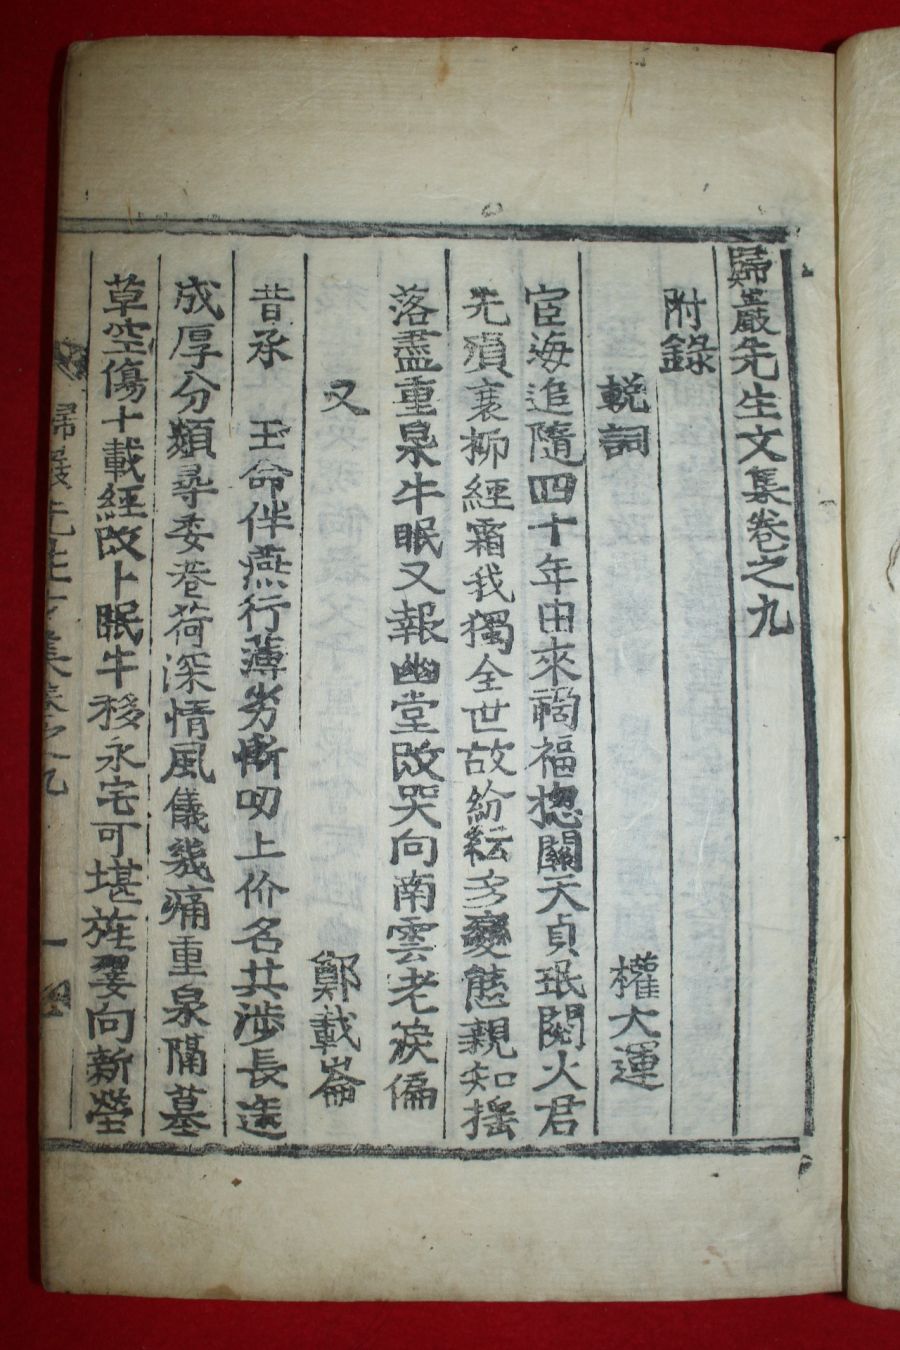 歸巖先生文集卷之九
附錄
輓詞
權大運
宦海追隨四十年由來禍福捴關天貞珉閱火君
先殞衰柳經霜我獨全世故紛紜多變態親知搖
落盡重泉牛眠又報幽堂改哭向南雲老淚偏
又
鄭載崙
昔承 王命伴燕行薄劣慚叨上价名共涉長途
成厚分類尋委巷荷深情風儀幾痛重泉隔墓
草空傷十載經改卜眠牛移永宅可堪旌翣向新塋
歸巖先生文集卷之九
一